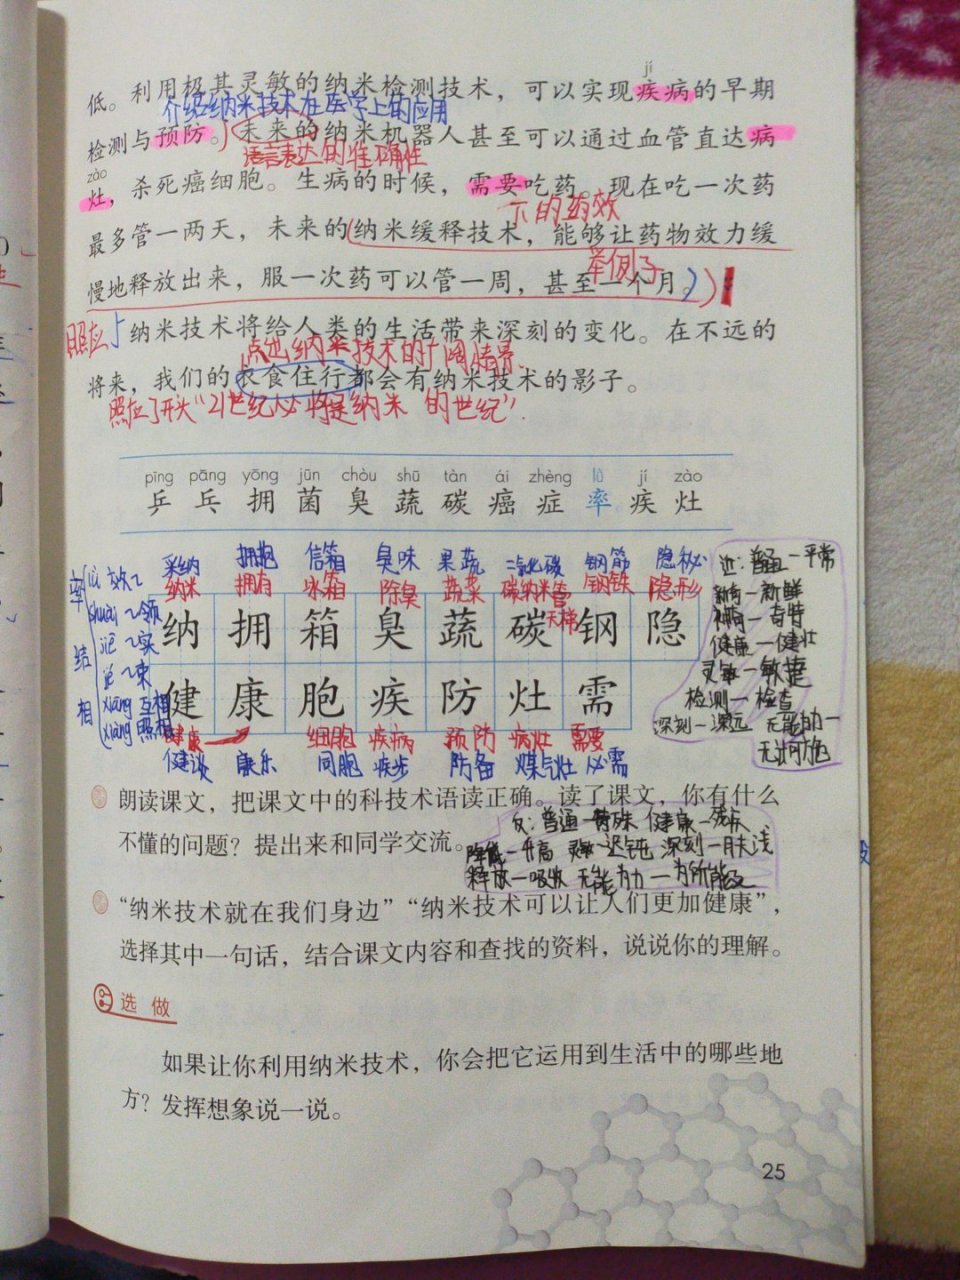 jí
低。利用极其灵敏的纳米检测技术，可以实现疾病的早期
介绍纳米技术在医学上的应用
检测与预防。未来的纳米机器人甚至可以通过血管直达病
语言表达的准确性
zào
灶，杀死癌细胞。生病的时候，需要吃药。现在吃一次药
下的药效
最多管一两天，未来的(纳米缓释技术，能够让药物效力缓
举例子
慢地释放出来，服一次药可以管一周，甚至一个月。)
照应
纳米技术将给人类的生活带来深刻的变化。在不远的
点出纳米技术的广阔情景.
将来，我们的衣食住行都会有纳米技术的影子。
照应了开头“21世纪必将是纳米 的世纪”.
pīng pāng yōng jūn chòu shū tàn ái zhèng lǜ jí zào
乒 乓 拥 菌 臭 蔬 碳 癌 症 率 疾 灶
采纳 拥抱 信箱 臭味 果蔬 钢筋 隐秘
纳米 拥有 冰箱 除臭 蔬菜 碳纳米管 钢铁 隐形
天梯
纳 拥 箱 臭 蔬 碳 钢 隐
健 康 胞 疾 防 灶 需
健康 细胞 疾病 预防 病灶 需要
健谈 康乐 同胞 疾步 防备 煤气灶 必需
率 lǜ 效~
shuài ~领
结 jiē ~实
jié ~束
相 xiāng 互相
xiàng 照相
近：普通—平常
新奇—新鲜
神奇—奇特
健康—健壮
灵敏—敏捷
检测—检查
深刻—深远 无能为力—
无计可施
朗读课文，把课文中的科技术语读正确。读了课文，你有什么
不懂的问题？提出来和同学交流。
反：普通—特殊 健康—残疾
降低—升高 灵敏—迟钝 深刻—肤浅
释放—吸收 无能为力—为所能及
“纳米技术就在我们身边”“纳米技术可以让人们更加健康”，
选择其中一句话，结合课文内容和查找的资料，说说你的理解。
选做
如果让你利用纳米技术，你会把它运用到生活中的哪些地
方？发挥想象说一说。
25